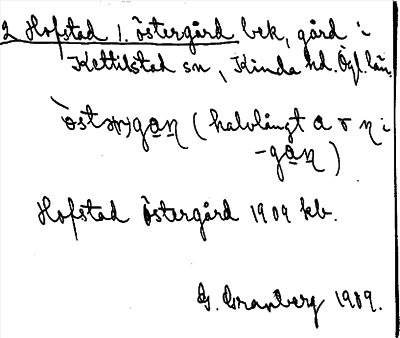 2 Hofstad 1. Östergård bek, gård i
Kettilstad sn, Kinda hd. Ögl. län.
(halvlångt a o n i
-gan)
Hofstad Östergård 1909 kb.
G. Granberg 1909.